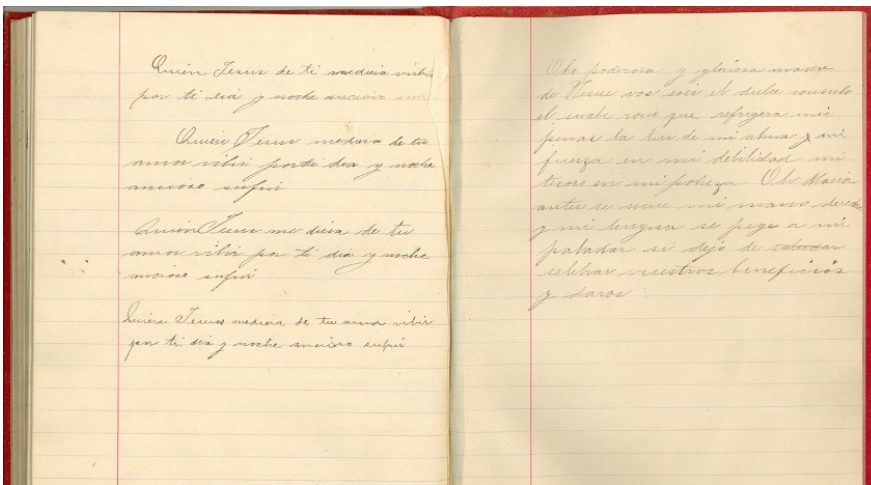 Quien Jesus de ti medicia vibir
por ti dia y noche ancioso
Quien Jesus mediera de tu
amor vibir por ti dia y noche
ancioso sufrir
Quien Jesus me diera de tu
amor vibir por ti dia y noche
ancioso sufrir
Quien Jesus mediera de tu amor vibir
por ti dia y noche ancioso sufrir
Oho poderosa y gloriosa madre
de Jesus vos sois el dulce consuelo
el suabe rocio que refrigera mis
penas la luz de mi alma y mi
fuerza en mi debilidad mi
tesoro en mi pobreza Oh Maria
antes se seque mi mano derecha
y mi lengua se pege a mi
paladar si dejo de
selebrar vuestros beneficios
y